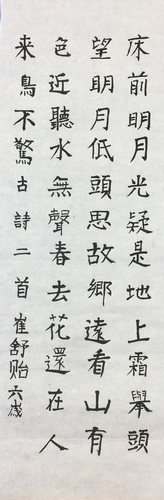 床前明月光疑是地上霜舉頭
望明月低頭思故鄉遠看山有
色近聽水無聲春去花還在人
来鳥不驚古詩二首崔舒贻六歲